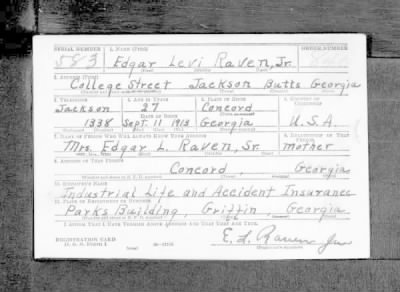 SERIAL NUMBER 1. NAME (Print) ORDER NUMBER
583 Edgar Levi Raven, Jr.
(First) (Middle) (Last)
2. ADDRESS (Print)
College Street Jackson Butts Georgia
3. TELEPHONE 4. AGE IN YEARS 5. PLACE OF BIRTH 6. COUNTRY OF CITIZENSHIP
Jackson 27 Concord
DATE OF BIRTH
1338 Sept. 11 1913 Georgia U.S.A.
7. NAME OF PERSON WHO WILL ALWAYS KNOW YOUR ADDRESS 8. RELATIONSHIP OF THAT PERSON
Mrs. Edgar L. Raven, Sr. mother
9. ADDRESS OF THAT PERSON
Concord, Georgia
10. EMPLOYER'S NAME
Industrial Life and Accident Insurance
11. PLACE OF EMPLOYMENT OR BUSINESS
Parks Building, Griffin, Georgia
I AFFIRM THAT I HAVE VERIFIED ABOVE ANSWERS AND THAT THEY ARE TRUE.
REGISTRATION CARD E. L. Raven Jr.
D. S. S. FORM 1